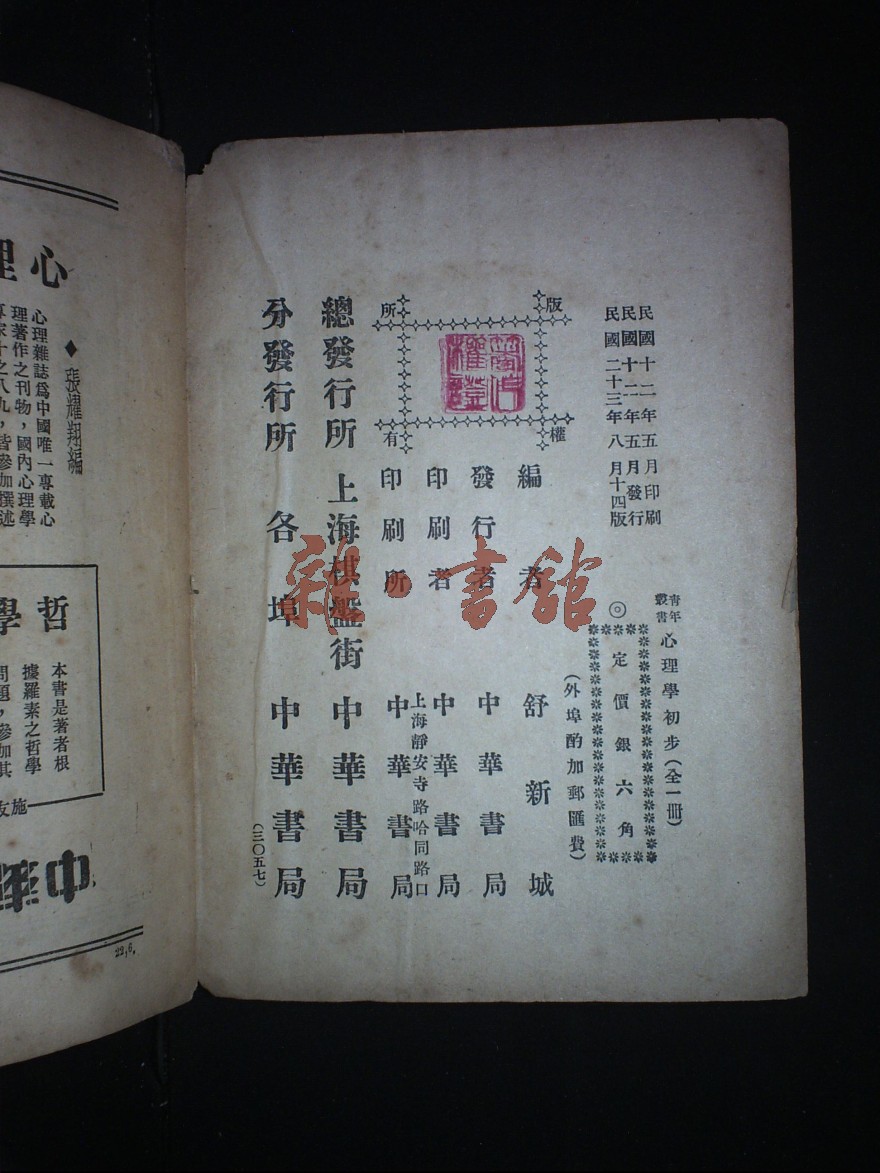 民國十二年五月印刷
民國十二年五月發行
民國二十三年八月十四版
青年叢書 心理學初步(全一冊)
◎定價銀六角
(外埠酌加郵匯費)
版權所有
編者 舒新城
發行者 中華書局
印刷者 中華書局
上海靜安寺路哈同路口
印刷所 中華書局
總發行所 上海棋盤街 中華書局
分發行所 各埠 中華書局
(三〇五七)
雜·書館
心理
◆張耀翔編
心理雜誌爲中國唯一專載心
理著作之刊物,國內心理學
專家十之八九,皆參加撰述
哲學
本書是著者根
據羅素之哲學
問題,參加其
施友
中華
22,6.